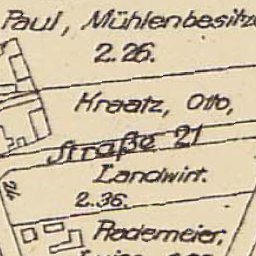 Paul, Mühlenbesitze
2.26.
Kraatz, Otto,
Straße 21
Landwirt.
2.36.
Rademeier,